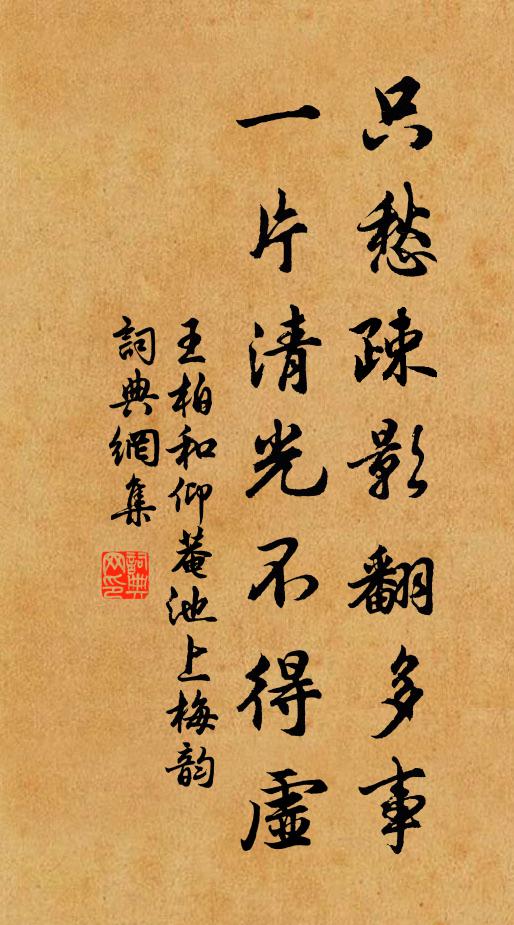 只愁疎影翻多事
一片清光不得虛
王柏和仰菴池上梅韵
詞典網集
詞典網印